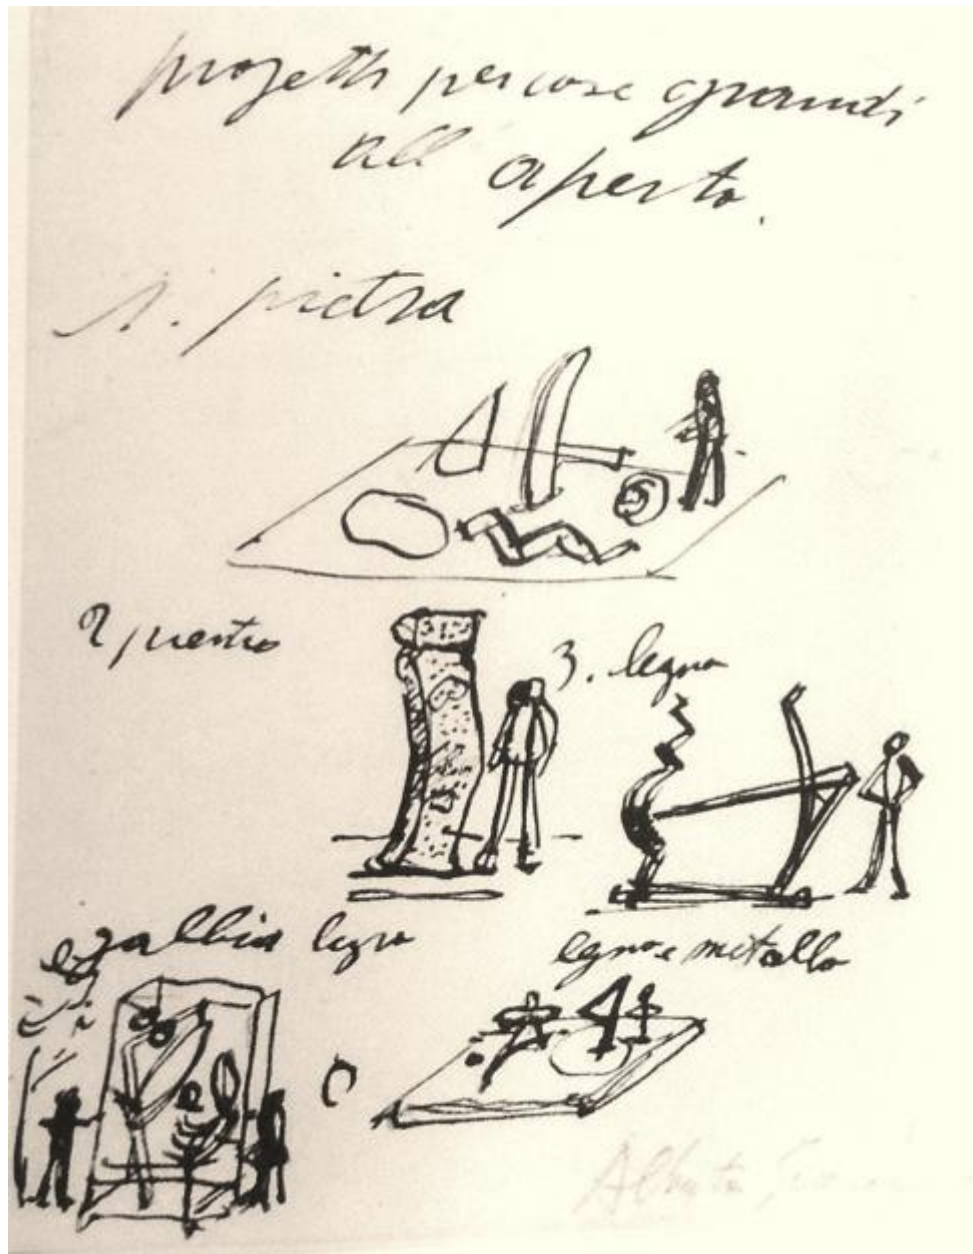 progetti per cose grandi
all aperto.
1. pietra
2 pietra
3. legno
gabbia legno
legno e metallo
Alberto